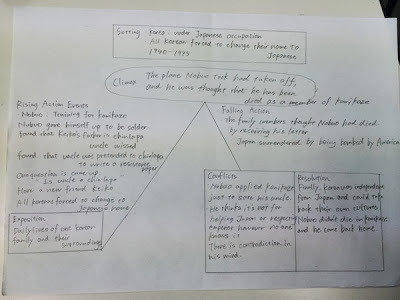 Setting
Korea: under Japanese occupation
All Korean forced to change their name to
Japanese
1940-1945
Climax
The plane Nobuo took had taken off,
and he was thought that he has been
died as a member of kamikaze
Rising Action Events
Nobuo: Training for kamikaze
Nobuo gave himself up to be solder
found that Keiko's father is chinlopa
uncle missed
found that uncle was pretended to chinlopa
to write a resistance
paper
One question is came up
Is uncle a chinlopa
Have a new friend Keiko
All Koreans forced to change to
Japanese name
Exposition
Daily lives of one korean
family and their
surroundings
Falling Action
The family members thought Nobuo had died
by receiving his letter
Japan surrendered by being bombed by America
Conflicts
Nobuo applied kamikaze
just to save his uncle.
He thinks it's not for
helping Japan or respecting
emperor however no one
knows it
There is contradiction in
his mind.
Resolution
Finally, Korea was independent
from Japan and could take
back their own cultures
Nobuo didn't die in kamikaze
and he came back home.